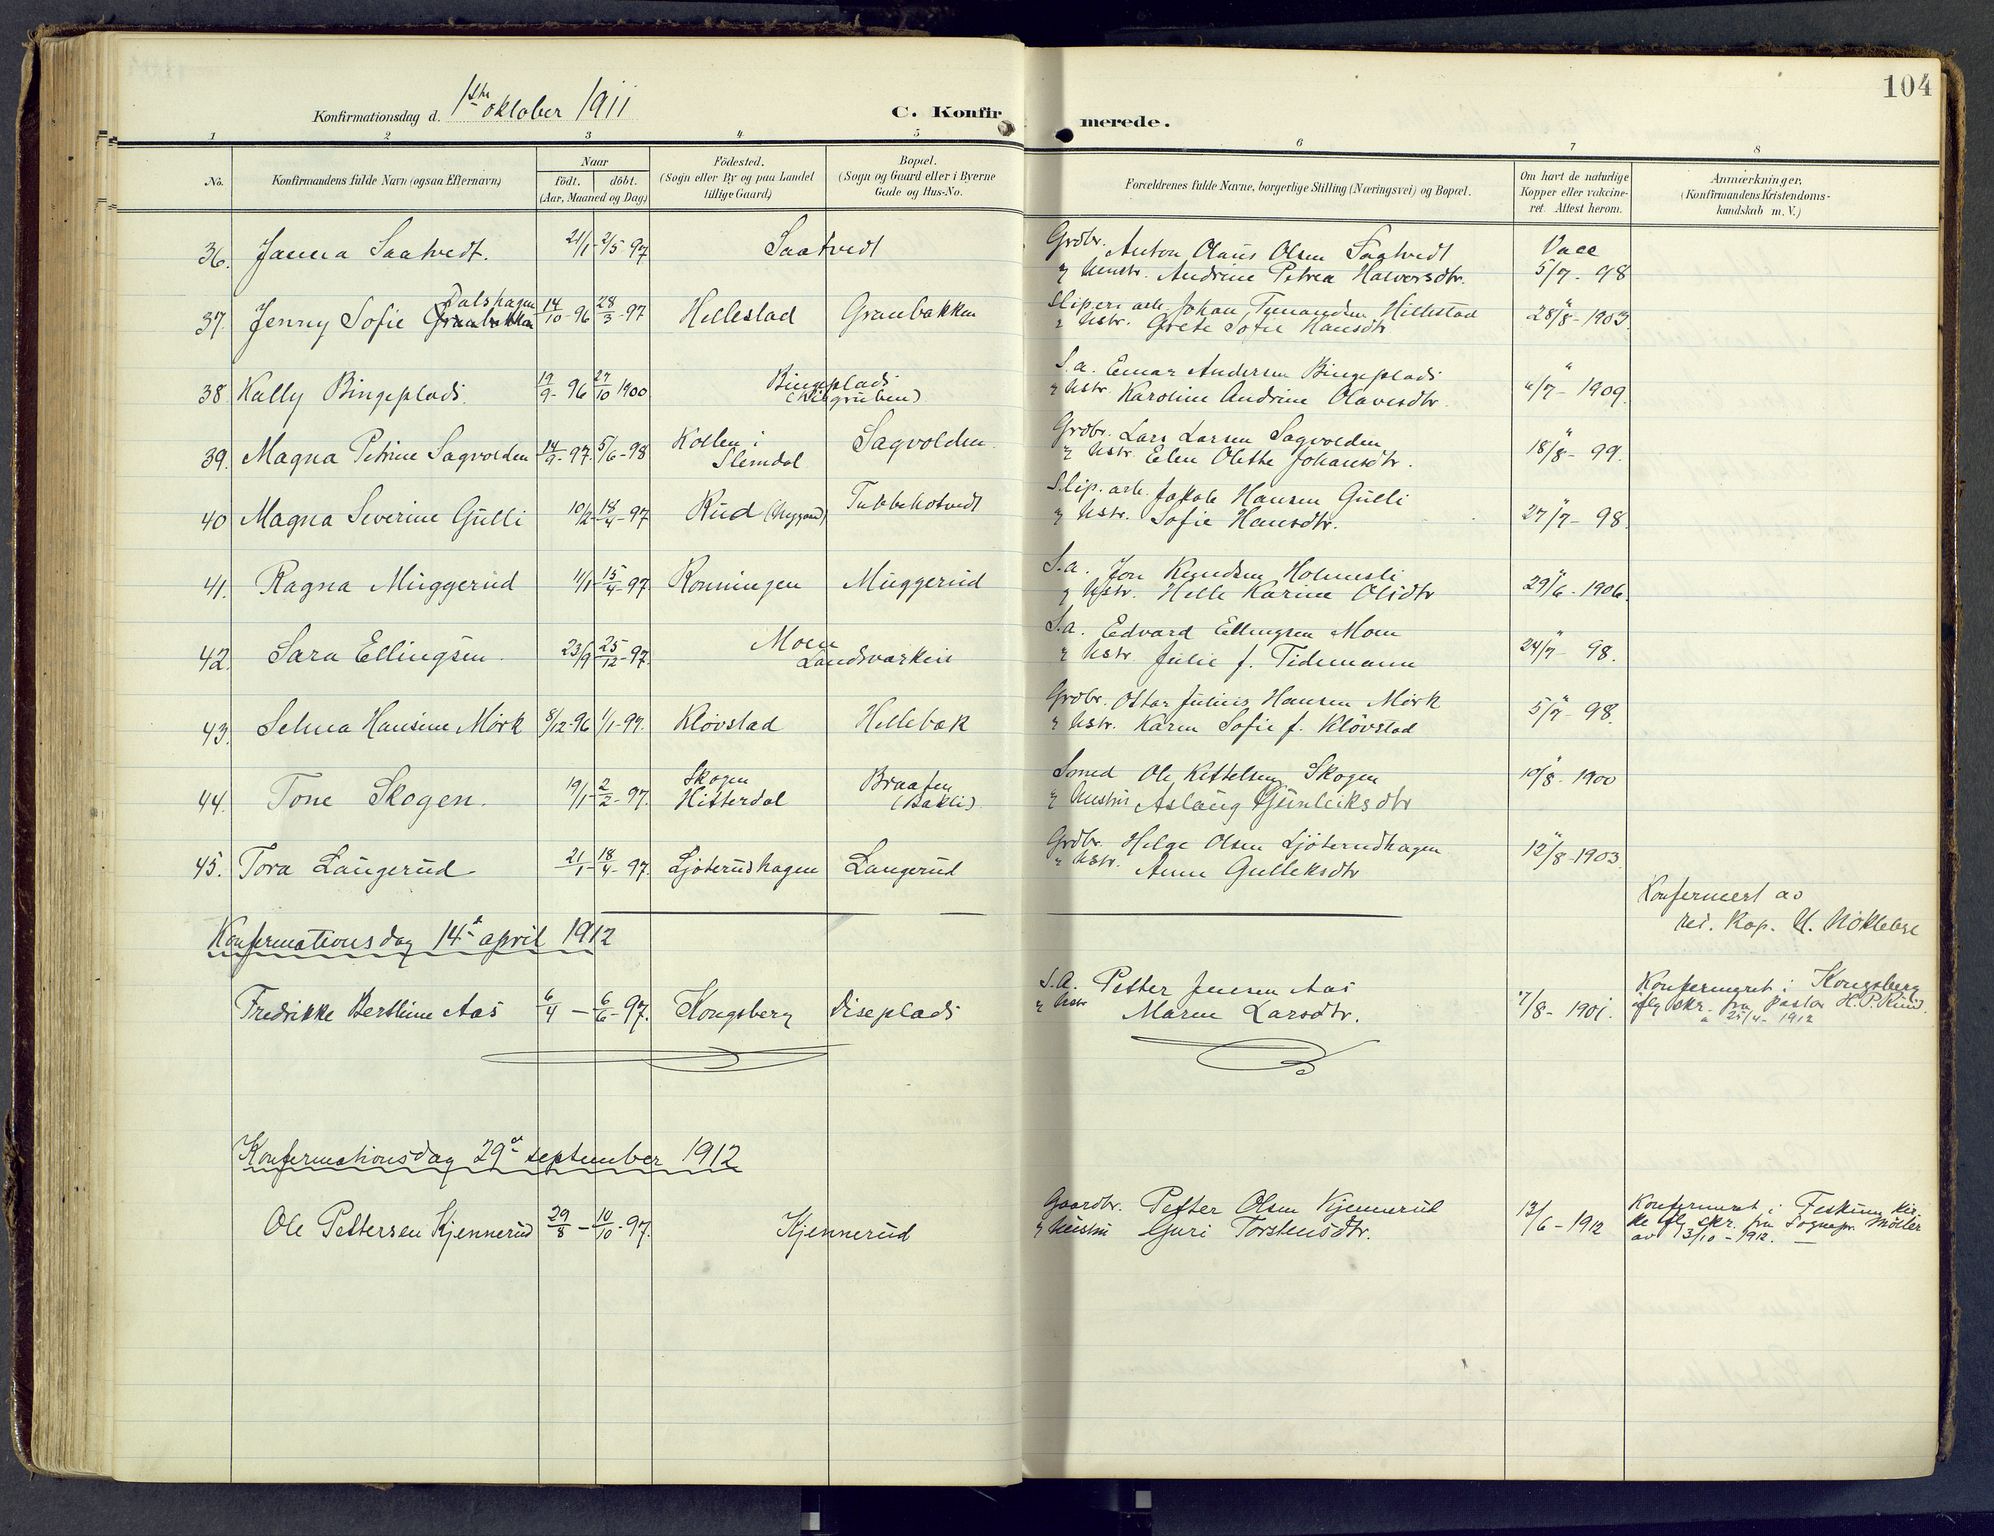 104
Konfirmationsdag d. 1ste oktober 1911
C. Konfirmerede.
1 2 3 4 5 6 7 8
No.
Konfirmandens fulde Navn (ogsaa Efternavn)
Naar
födt. döbt.
(Aar, Maaned og Dag)
Födested.
(Sogn eller By og paa Landet
tillige Gaard)
Bopæl.
(Sogn og Gaard eller i Byerne
Gade og Hus-No.
Forældrenes fulde Navne, borgerlige Stilling (Næringsvei) og Bopæl.
Om havt de naturlige
Kopper eller vakcine-
ret. Attest herom.
Anmærkninger,
(Konfirmandens Kristendoms-
kundskab m. V.)
36. Janna Saatvedt. 21/1 - 2/5 - 97 Saatvedt Grdbr. Anton Olaus Olsen Saatvedt Vacc
& Hustr. Andrine Petrea Halvorsdtr. 5/7 - 98
37. Jenny Sofie Granbakken Dalshagen 14/10 - 96 28/3 - 97 Hellestad Granbakken Sliperiarb. Johan Hellestad 28/8 - 1903.
& Hustr. Grete Sofie Hansdtr
38. Kally Bingeplads. 19/9 - 96 27/10 1900 Bingeplads S.a. Einar Andersen Bingeplads " 6/7 - 1909.
& Hustr. Karoline Andrine Olavesdtr.
39. Magna Petrine Sagvolden 14/9 - 97. 5/6 - 98 Kollen i Slemdal Sagvolden Grdbr. Lars Larsen Sagvolden " 18/8 - 99.
& Hustr. Elen Olette Johansdtr.
40 Magna Severine Gulli 10/2 - 18/4 - 97 Rud (Nygaard) Tubbehotvedt Slip. arb. Jakob Hansen Gulli 27/7 - 98.
& Hustr. Sofie Hansdtr.
41. Ragna Muggerud 11/1 15/4 - 97. Rønningen Muggerud S.a. Jon Knudsen Holmsli " 29/6 - 1906.
& Hustr. Helle Karine Olsdtr
42. Sara Ellingsen 23/9 25/12 - 97. Moen Landsværkein S.a. Edvard Ellingsen Moen " 24/7 - 98.
& Hustr. Julie f. Tidemann
43. Selma Hansine Mørk 8/12 - 96 1/1 - 97. Kløvstad Hellebæk Grdbr. Ottar Julius Hansen Mørk " 5/7 - 98.
& Hustr. Karen Sofie f. Kløvstad
44. Tone Skogen. 19/1 - 2/2 - 97. Skogen Hitterdal Braaten (Bakli). Smed Ole Kittelsen Skogen " 10/8 - 1900
& Hustru Aslaug Gunleiksdtr
45. Tora Langerud. 21/1 - 18/4 - 97. Ljøterudhagen Langerud Grdbr. Helge Olsen Ljøterudhagen " 12/8 - 1903
& Hustr. Anne Gulleksdtr
Konfirmationsdag 14de april 1912
Konfermert av
res. Kap. Nökleby
Fredrikke Berthine Aas 6/4 - 6/6 - 97. Kongsberg Diseplads S.A. Petter Jensen Aas 7/8 - 1901. Konfermeret i Kongsberg
& Hustr Maren Larsdtr. iflg skr. fra pastor H. P. Kiind.
25/4 - 1912
Konfermationsdag 29de september 1912
Ole Pettersen Kjennerud 29/8 - 10/10 - 97. Kjennerud Gaardbr. Petter Olsen Kjennerud 13/6 - 1912 Konfermeret i Feskum kir-
& Hustru Guri Torstensdtr. ke iflg skr. fra Sognepr. Møller
av 3/10 - 1912.